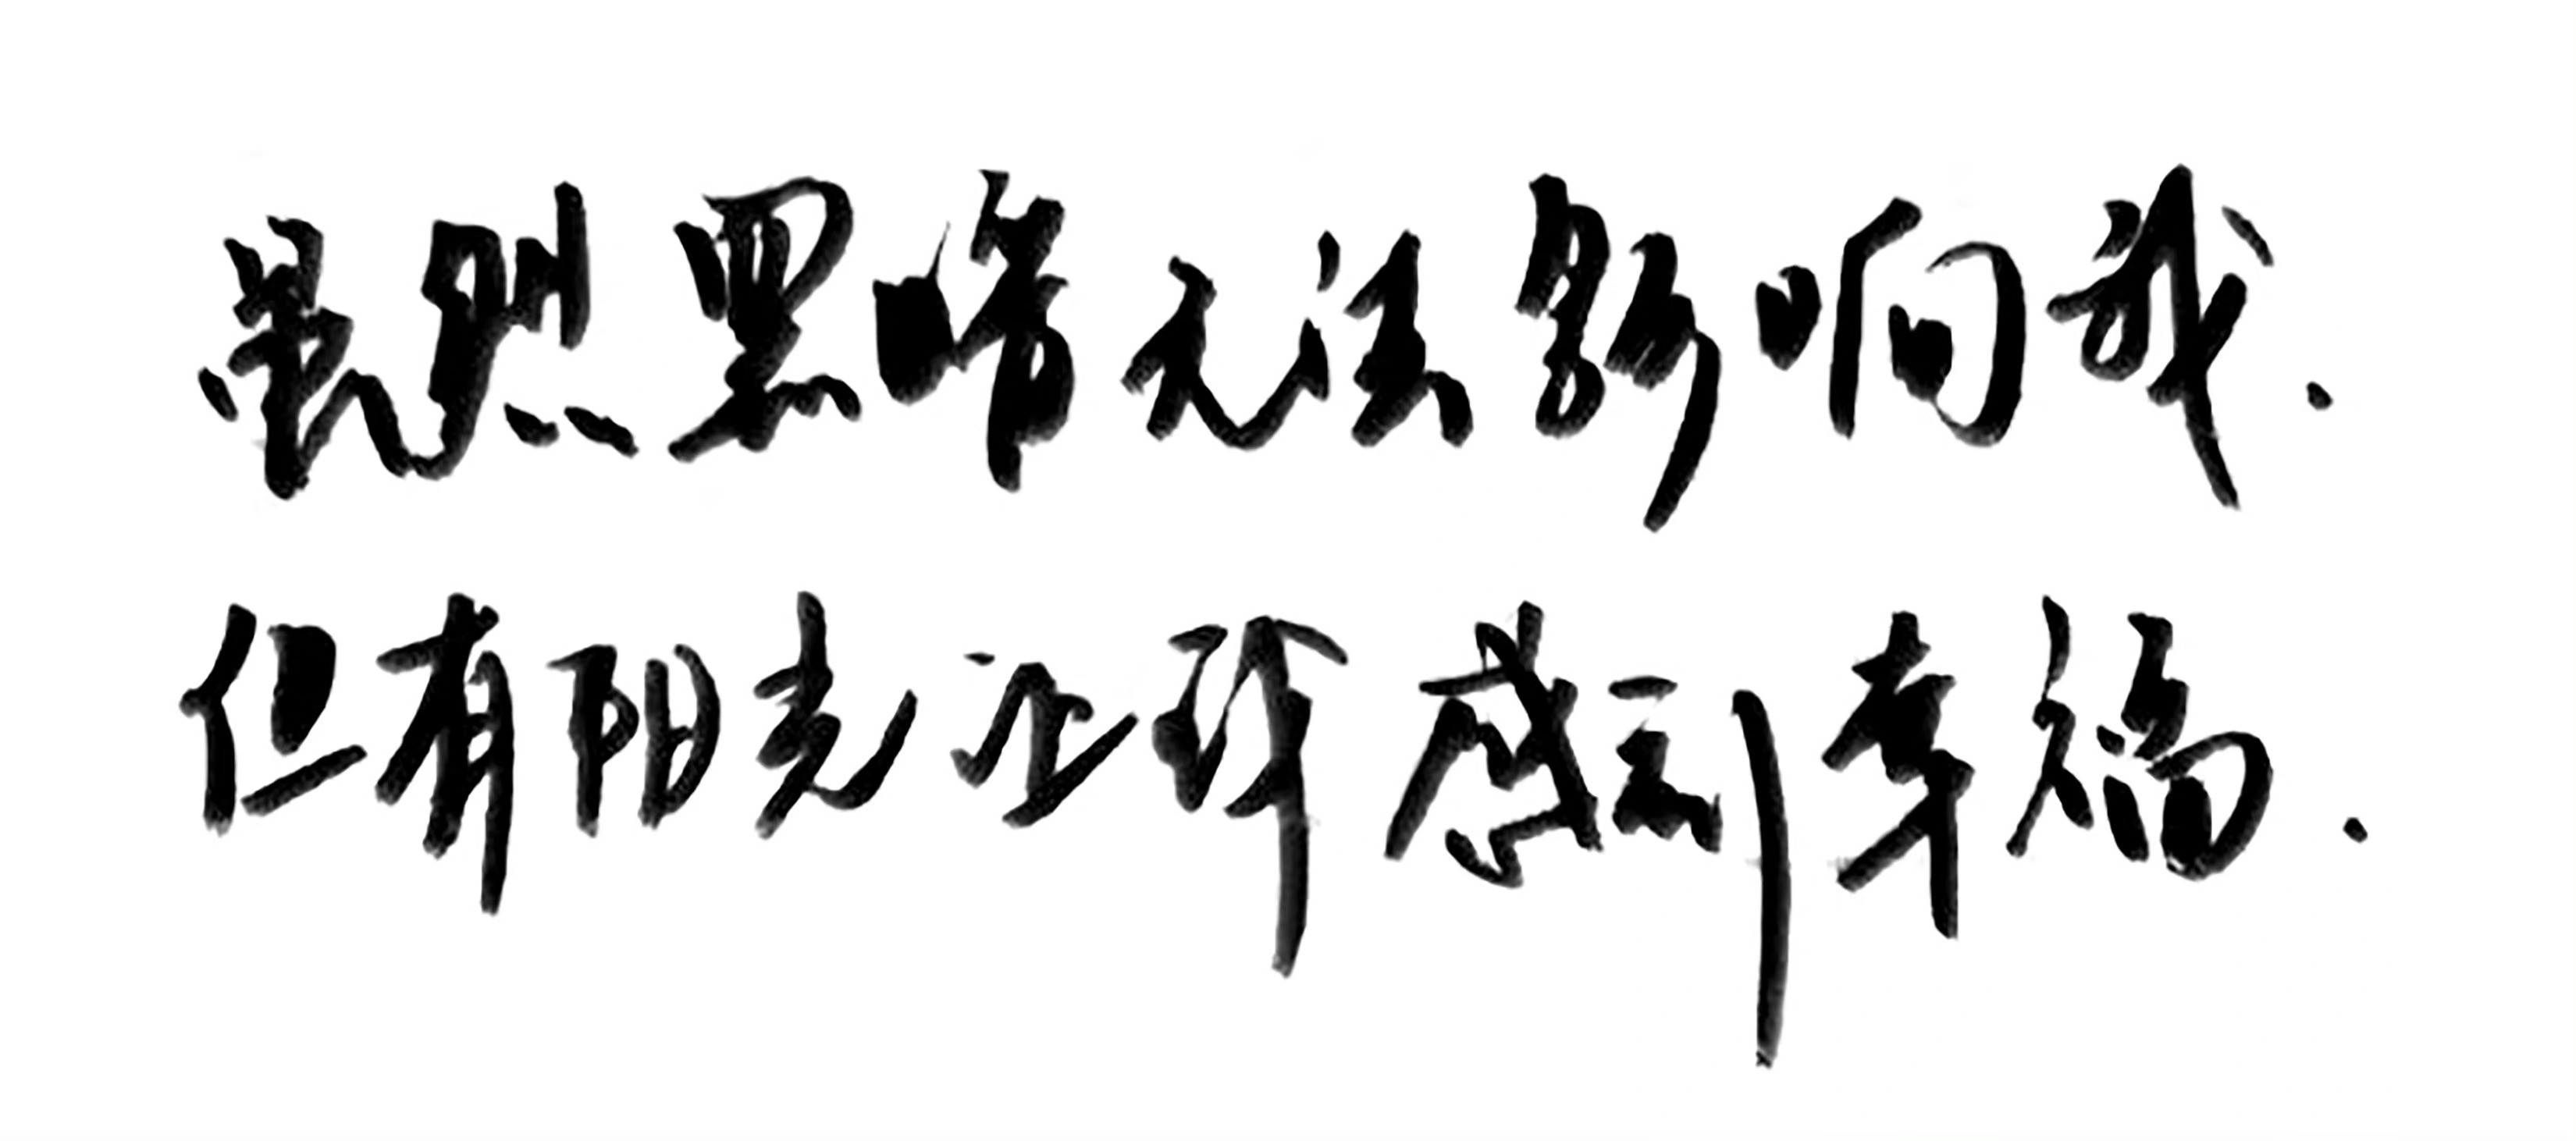 虽然黑暗无法影响我.
但有阳光让我感到幸福.